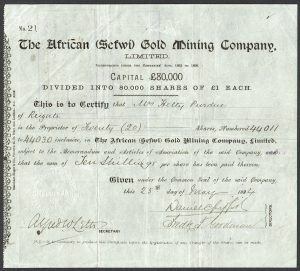 No. 21
The African (Sefwi) Gold Mining Company,
LIMITED.
CAPITAL £80,000
DIVIDED INTO 80,000 SHARES OF £1 EACH.
This is to Certify that Mrs Kitty Purdue
of Reigate
is the Proprietor of Twenty (20) Shares, Numbered 44011
to 44030 inclusive, in The African (Sefwi) Gold Mining Company, Limited,
subject to the Memorandum and Articles of Association of the said Company, and
that the sum of Ten Shillings per share has been paid thereon.
Given under the Common Seal of the said Company,
this 25th day of May
SECRETARY